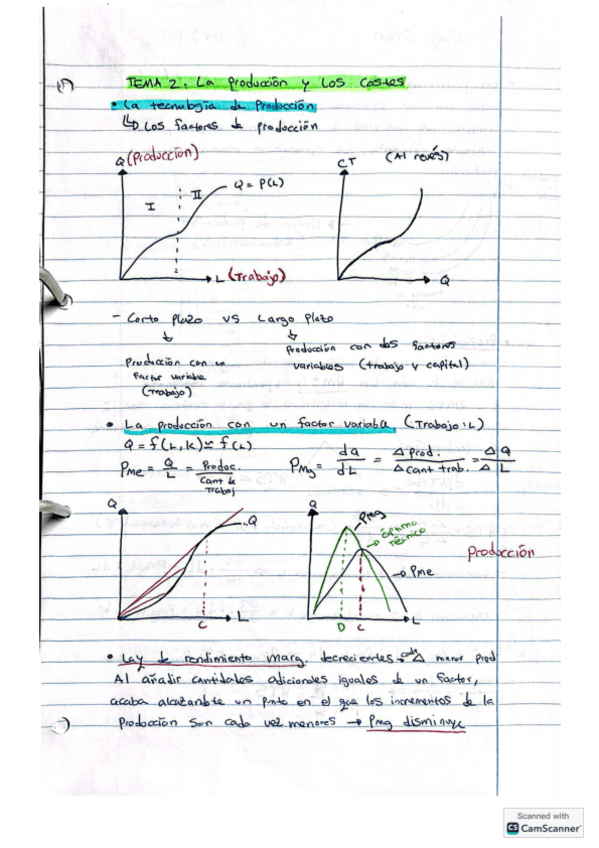 TEMA 2: La producción y los costes
• La tecnología de Producción
↳ Los factores de producción
Q (Producción)
I
II
Q = P(L)
L (Trabajo)
CT
(Al revés)
Q
- Corto plazo vs Largo plazo
↓ ↓
Producción con un
factor variable
(Trabajo)
Producción con dos factores
variables (trabajo y capital)
• La producción con un factor variable (Trabajo: L)
Q = f(L, K) ≃ f(L)
Pme = Q/L = Produc./Cant de Trabaj
PMg = dQ/dL = Δ Prod./Δ cant trab. = Δ Q/Δ L
Q
Q
L
C
Q
PMg
óptimo
técnico
Pme
L
D C
Producción
• Ley de rendimiento marg. decrecientes → cada Δ menor prod
Al añadir cantidades adicionales iguales de un factor,
acaba alcanzable un punto en el que los incrementos de la
Producción son cada vez menores → PMg disminuye
Scanned with
CS CamScanner